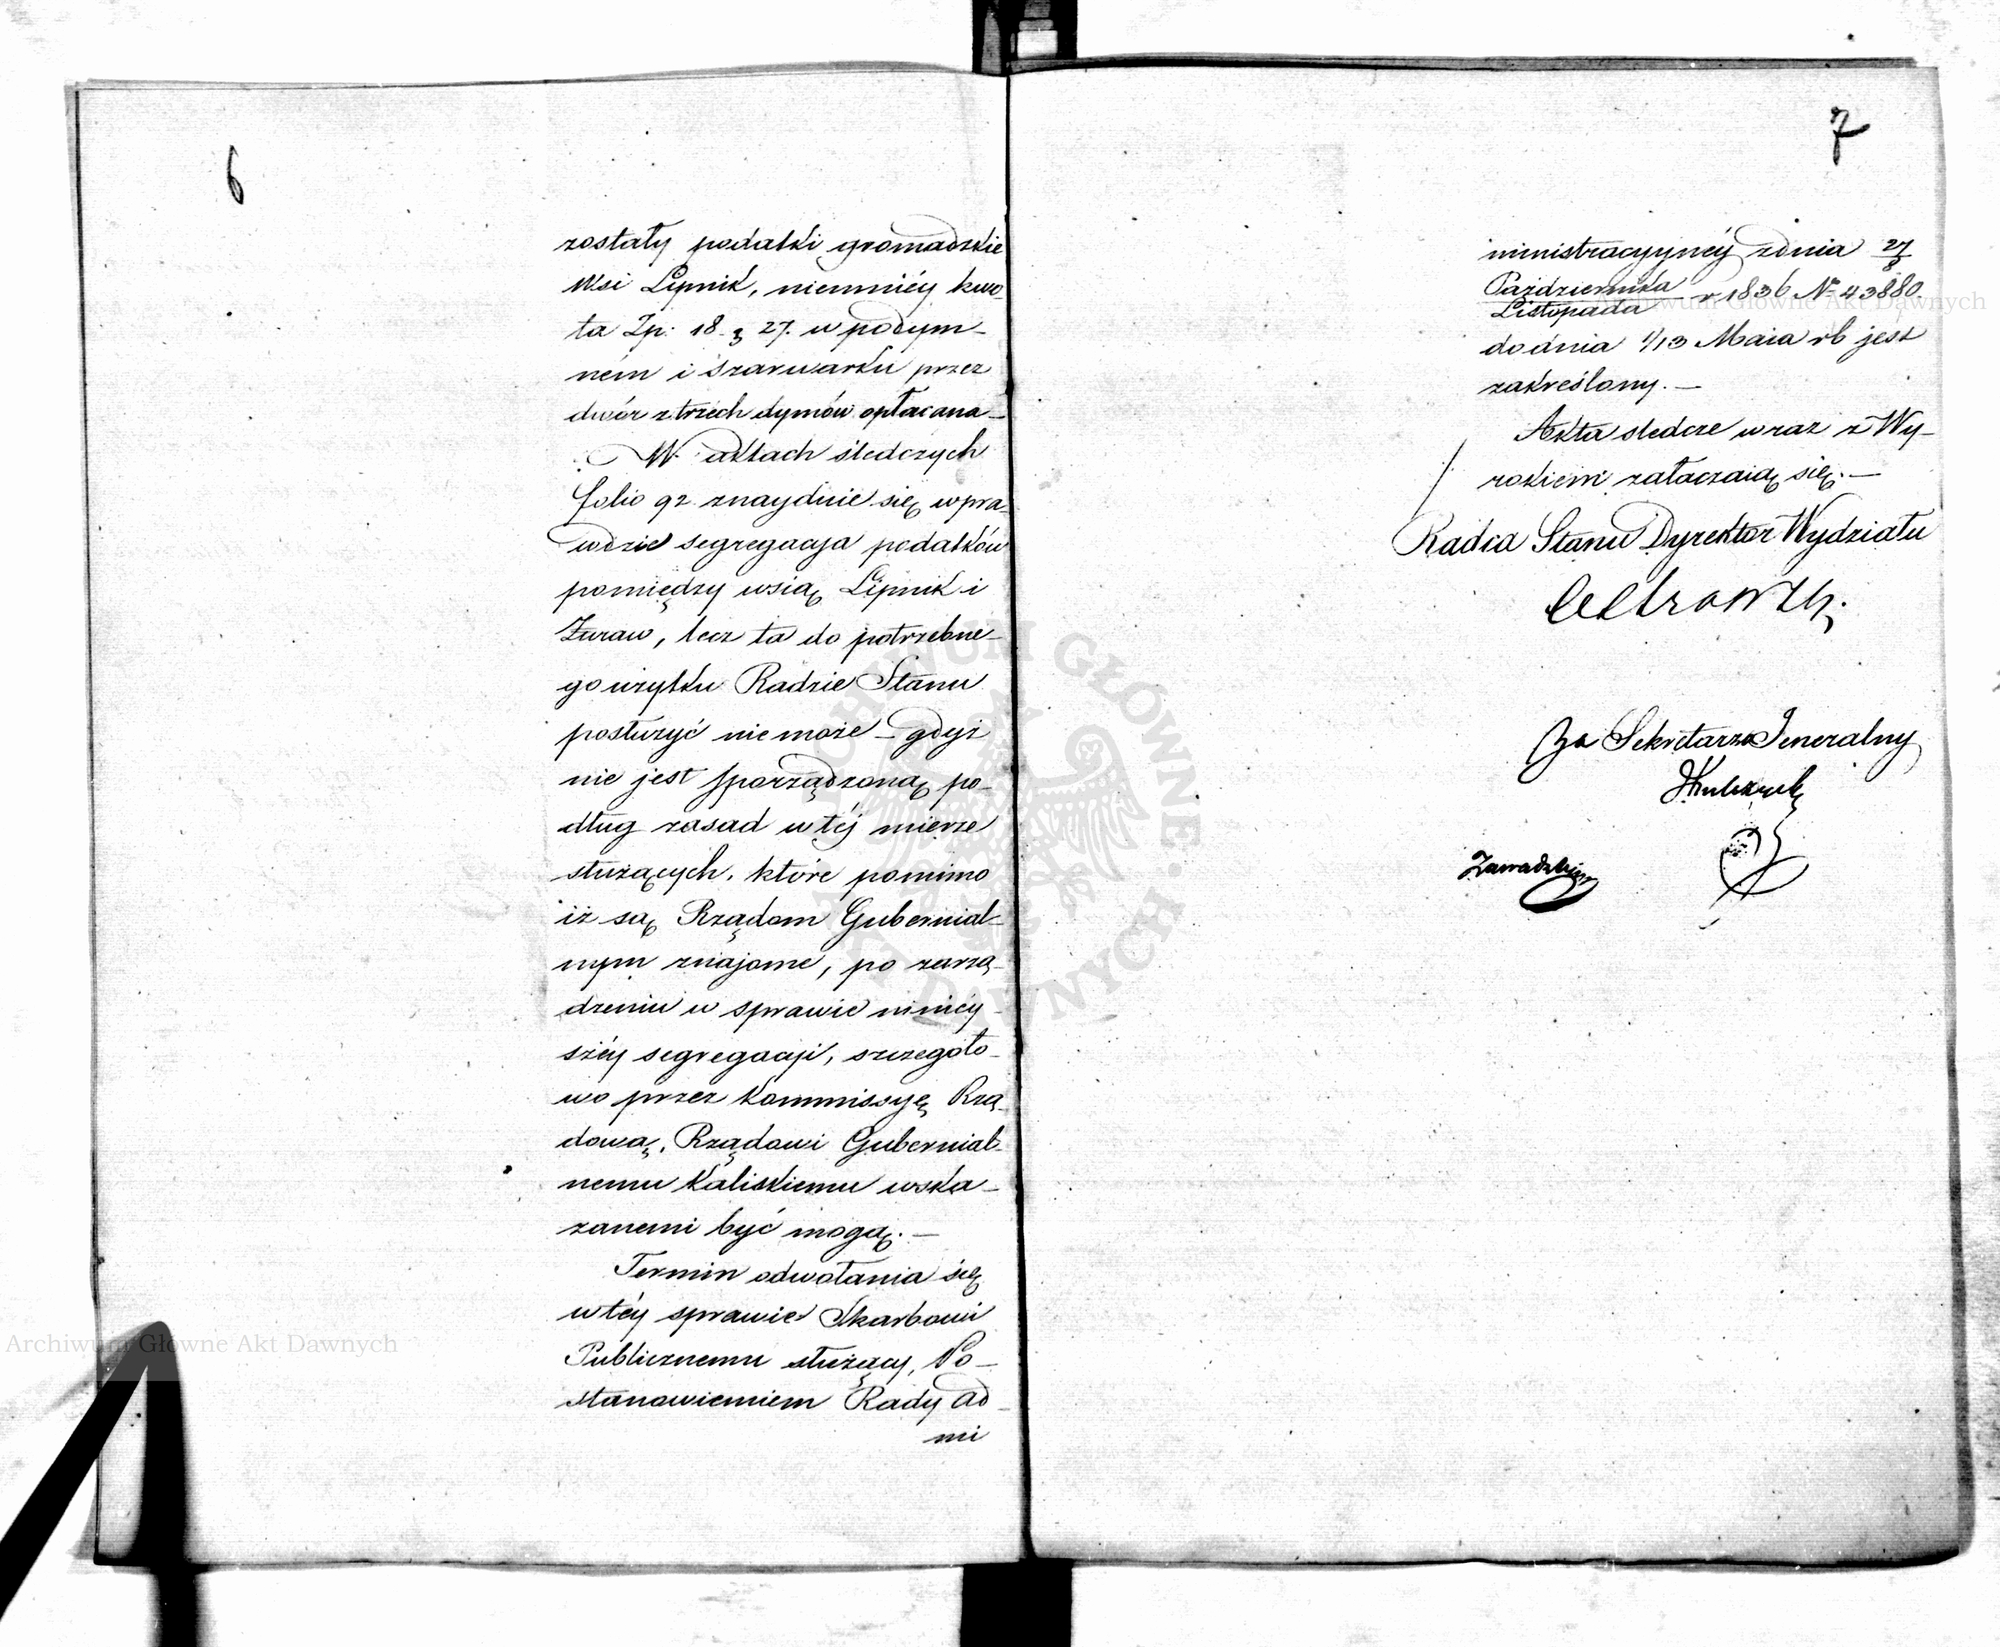 6
zostały podatki gromadzkie
Wsi Lipnik, niemniéy kwo-
ta Zp: 18. g 27. w podym-
ném i szarwarku przez
dwór z trzech dymów opłacana—
W aktach śledczych
folio 92 znayduie się wpra-
wdzie segregacya podatków
pomiędzy wsią Lipnik i
Żuraw, lecz ta do potrzebne-
go użytku Radzie Stanu
posłużyć nie może — gdyż
nie jest sporządzoną po-
dług zasad w téj mierze
służących, które pomimo
iż są Rządom Gubernial-
nym znajome, po zarzą-
dzeniu w sprawie niniéy-
széy segregacji, szczegóło-
wo przez Kommissyę Rzą-
dową, Rządowi Gubernial-
nemu Kaliskiemu wska-
zanemi być mogą.—
Termin odwołania się
w téy sprawie Skarbowi
Publicznemu służący, Po-
stanowieniem Rady Ad-
mi
7
ministracyynéy z dnia 27/8
Października/Listopada r 1836 № 43880
do dnia 1/13 Maia rb jest
zakreślony.—
Akta śledcze wraz z Wy-
rokiem załączaią się.—
Radca Stanu Dyrektor Wydziału
Za Sekretarza Jeneralny
Zawadzki
Archiwum Główne Akt Dawnych
Archiwum Główne Akt Dawnych
ARCHIWUM GŁÓWNE AKT DAWNYCH